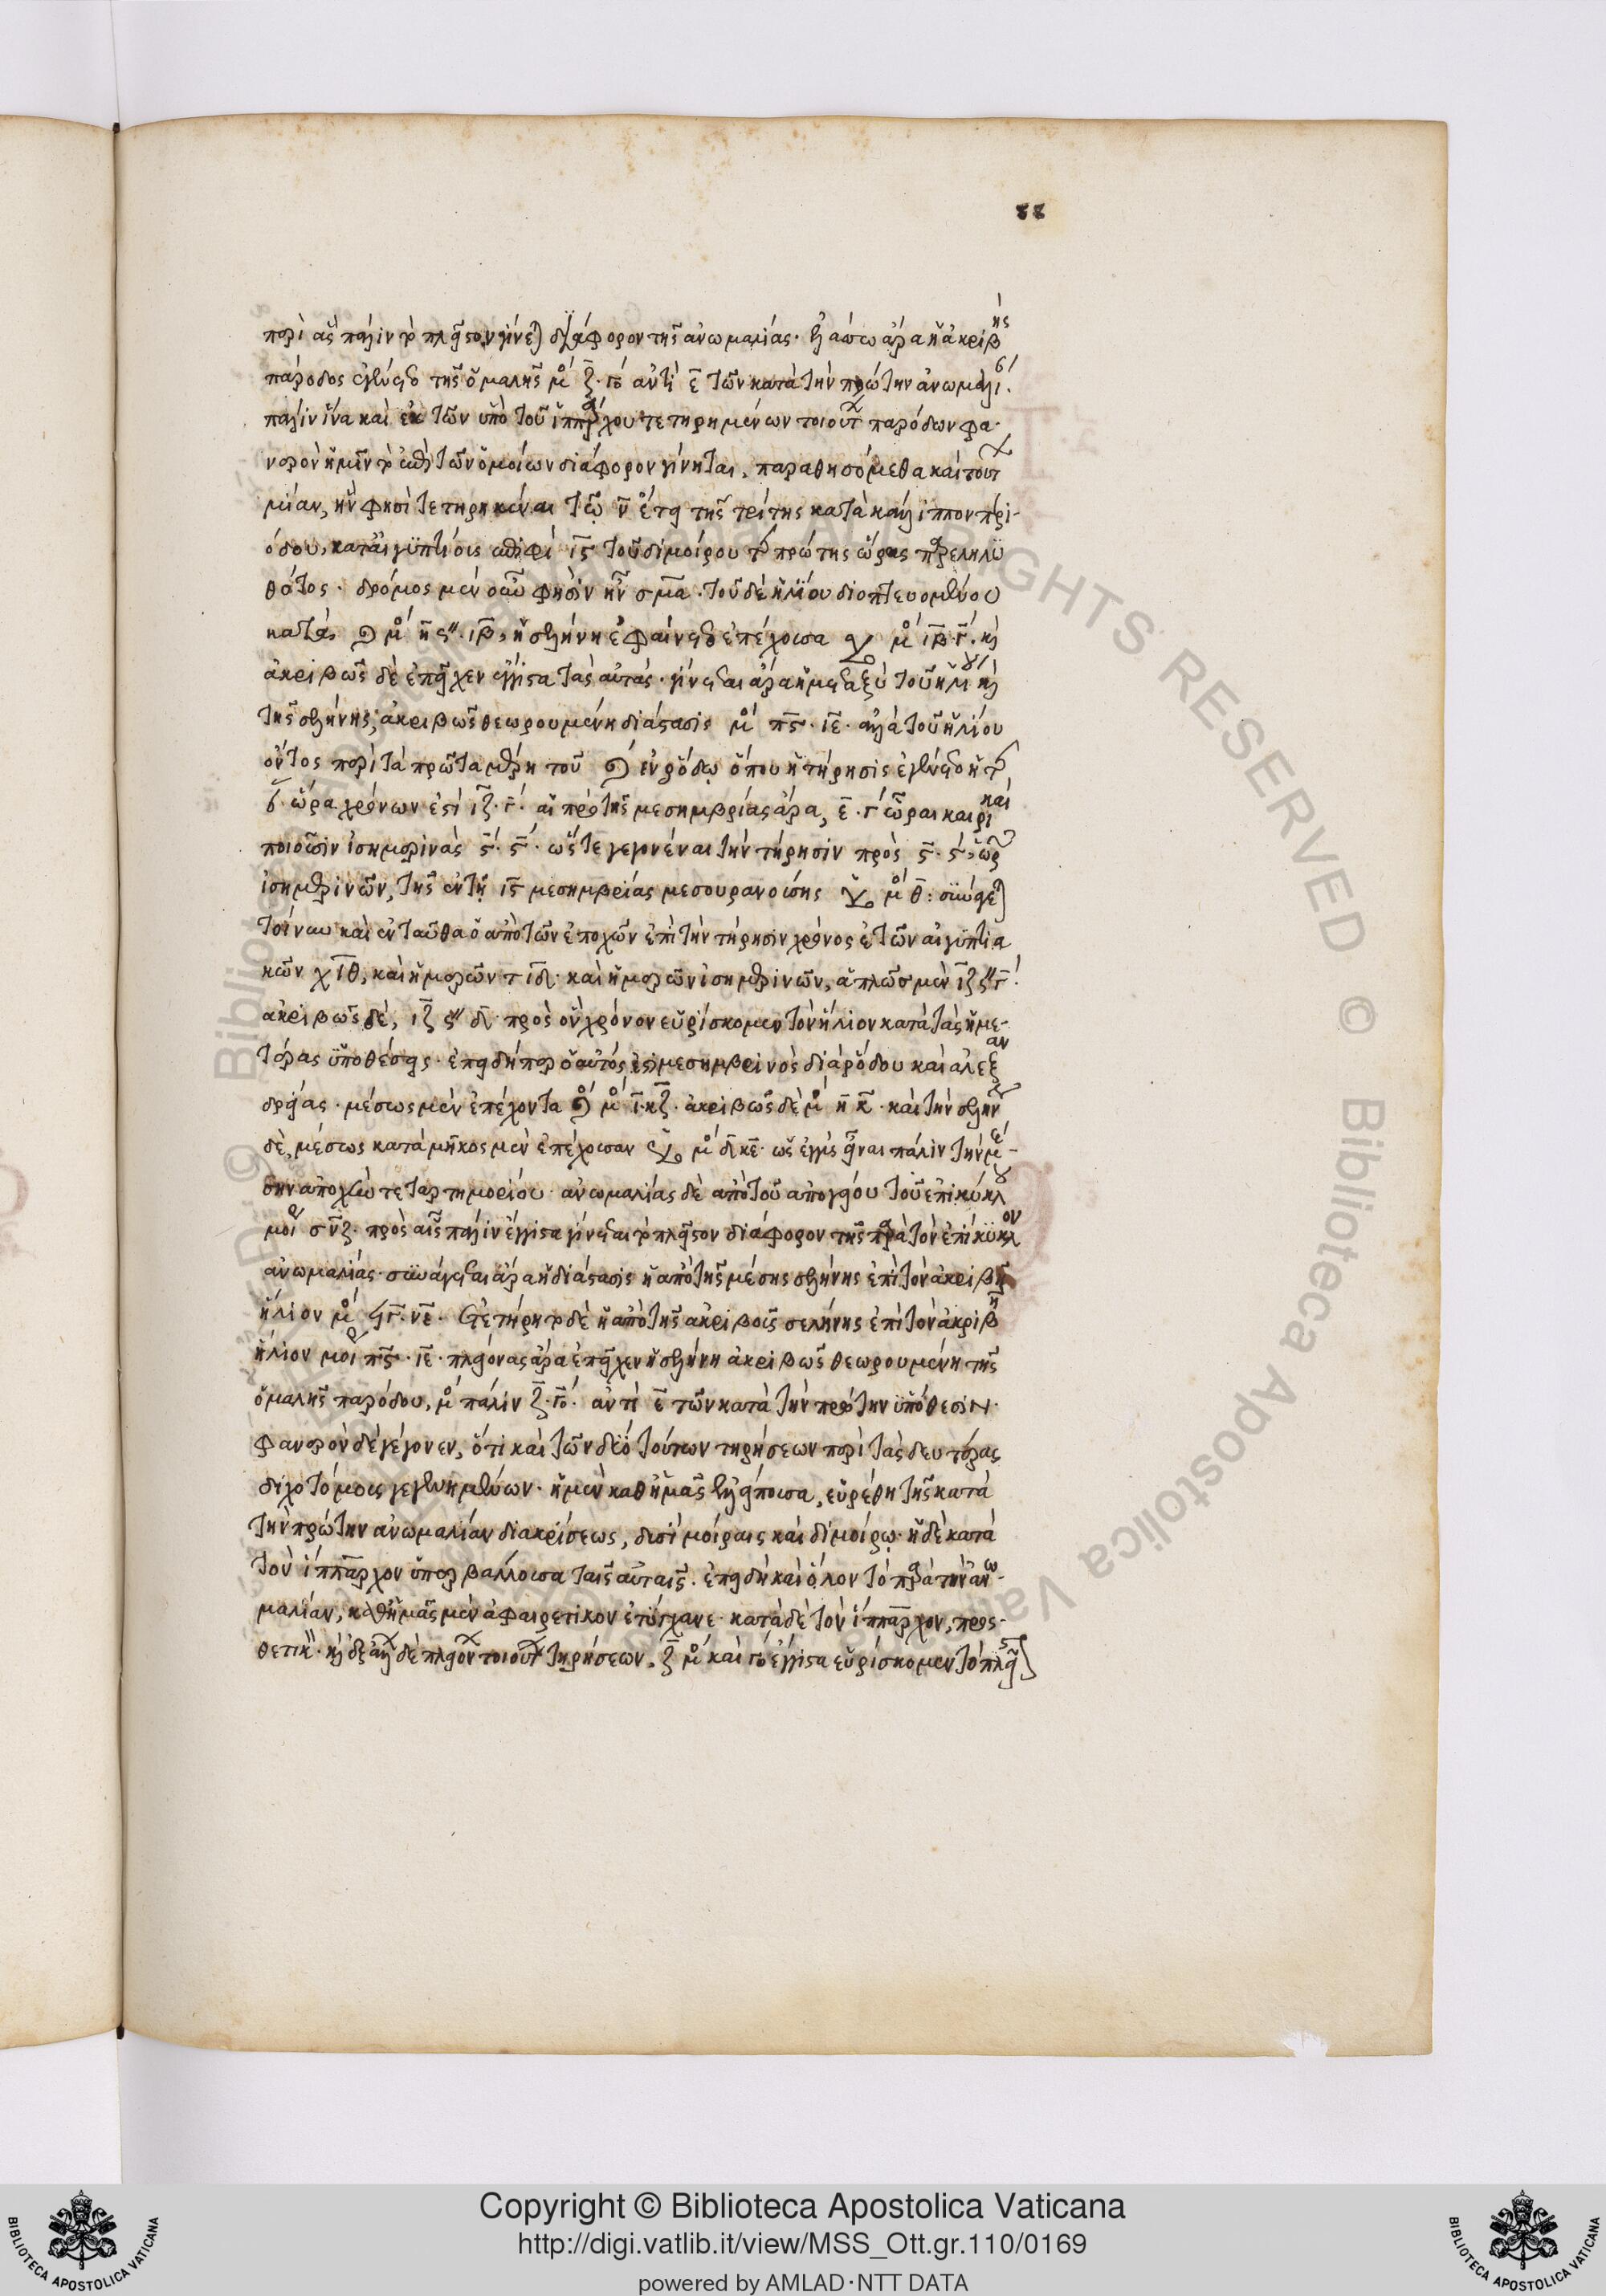 88
περὶ ἃς πάλιν τὸ πλεῖστον γίνεται διάφορον τῆς ἀνωμαλίας. ἐλάττων ἄρα ἡ ἀκριβὴς
πάροδος ἐγένετο τῆς ὁμαλῆς μο ζ γο ἀντὶ ε τῶν κατὰ τὴν πρώτην ἀνωμαλί.
πάλιν ἵνα καὶ ἐκ τῶν ὑπὸ τοῦ ἱππάρχου τετηρημένων τοιούτων παρόδων φα-
νερὸν ἡμῖν τὸ ἐπὶ τῶν ὁμοίων διάφορον γίνηται, παραθησόμεθα καὶ τούτων
μίαν, ἣν φησὶ τετηρηκέναι τῷ ν ἔτει τῆς τρίτης κατὰ κάλιππον περι-
όδου, κατ' αἰγυπτίοις ἐπιφὶ ις τοῦ διμοίρου τῆς πρώτης ὥρας παρεληλυ
θότος. δρόμος μὲν οὖν φησὶν ἦν σμα. τοῦ δὲ ἡλίου διοπτευομένου
κατὰ ♌ μο η ιβ, ἡ σελήνη ἐφαίνετο ἐπέχουσα ♉ μο ιβ γ. καὶ
ἀκριβῶς δὲ ἐπεῖχεν ἔγγιστα τὰς αὐτάς. γίνεται ἄρα ἡ μεταξὺ τοῦ ἡλίου καὶ
τῆς σελήνης, ἀκριβῶς θεωρουμένη διάστασις μο πς ιε. ἀλλὰ τοῦ ἡλίου
ὄντος περὶ τὰ πρῶτα μέρη τοῦ ♌ ἐν ῥόδῳ ὅπου ἡ τήρησις ἐγένετο ἡ τῆς
ὥρα χρόνων ἐστὶ ιζ γ. αἱ πρὸ τῆς μεσημβρίας ἄρα, ε γ ὧραι καιρικαὶ
ποιοῦσιν ἰσημερινὰς ς ς. ὥστε γεγονέναι τὴν τήρησιν πρὸς ς ς ὡρῶν
ἰσημερινῶν, τῆς ἐν τῇ ις μεσημβρίας μεσουρανούσης ♉ μο θ: συνάγεται
τοίνυν καὶ ἐνταῦθα ὁ ἀπὸ τῶν ἐποχῶν ἐπὶ τὴν τήρησιν χρόνος ἐτῶν αἰγυπτια
κῶν χιθ, καὶ ἡμερῶν τιδ. καὶ ἡμερῶν ἰσημερινῶν, ἁπλῶς μὲν ιζ γ.
ἀκριβῶς δὲ, ιζ δ. πρὸς ὃν χρόνον εὑρίσκομεν τὸν ἥλιον κατὰ τὰς ἡμε-
τέρας ὑποθέσεις. ἐπειδήπερ ὁ αὐτός ἐστι μεσημβρινὸς διὰ ῥόδου καὶ ἀλεξαν
δρείας. μέσως μὲν ἐπέχοντα ♌ μο ι κζ. ἀκριβῶς δὲ μο η κ. καὶ τὴν σελήνην
δὲ, μέσως κατὰ μῆκος μὲν ἐπέχουσαν ♉ μο δ κε. ὡς ἐγγὺς εἶναι πάλιν τὴν μέ-
σην ἀποχὴν τεταρτημορίου. ἀνωμαλίας δὲ ἀπὸ τοῦ ἀπογείου τοῦ ἐπικύκλου
μοι σνζ. πρὸς αἷς πάλιν ἔγγιστα γίνεται τὸ πλεῖστον διάφορον τῆς παρὰ τὸν ἐπίκυκλον
ἀνωμαλίας. συνάγεται ἄρα ἡ διάστασις ἡ ἀπὸ τῆς μέσης σελήνης ἐπὶ τὸν ἀκριβῆ
ἥλιον μο ϟγ νε. ἐτετήρητο δὲ ἡ ἀπὸ τῆς ἀκριβοῦς σελήνης ἐπὶ τὸν ἀκριβῆ
ἥλιον μοι πς ιε. πλείονας ἄρα ἐπεῖχεν ἡ σελήνη ἀκριβῶς θεωρουμένη τῆς
ὁμαλῆς παρόδου, μο πάλιν ζ γο. ἀντὶ ε τῶν κατὰ τὴν πρώτην ὑπόθεσιν.
Φανερὸν δὲ γέγονεν, ὅτι καὶ τῶν δύο τούτων τηρήσεων περὶ τὰς δευτέρας
διχοτόμους γεγενημένων. ἡ μὲν καθ' ἡμᾶς ἐλλείπουσα, εὑρέθη τῆς κατὰ
τὴν πρώτην ἀνωμαλίαν διακρίσεως, δυσὶ μοίραις καὶ διμοίρῳ. ἡ δὲ κατὰ
τὸν ἵππαρχον ὑπερβάλλουσα ταῖς αὐταῖς. ἐπειδὴ καὶ ὅλον τὸ παρὰ τὴν ἀνω-
μαλίαν, καθ' ἡμᾶς μὲν ἀφαιρετικὸν ἐτύγχανε. κατὰ δὲ τὸν ἵππαρχον, προσ-
θετικόν. καὶ ἐξ ἄλλων δὲ πλειόνων τοιούτων τηρήσεων. ζ μο καὶ γο ἔγγιστα εὑρίσκομεν τὸ πλεῖστον
Copyright © Biblioteca Apostolica Vaticana
http://digi.vatlib.it/view/MSS_Ott.gr.110/0169
powered by AMLAD·NTT DATA